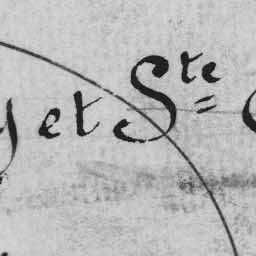 et Ste